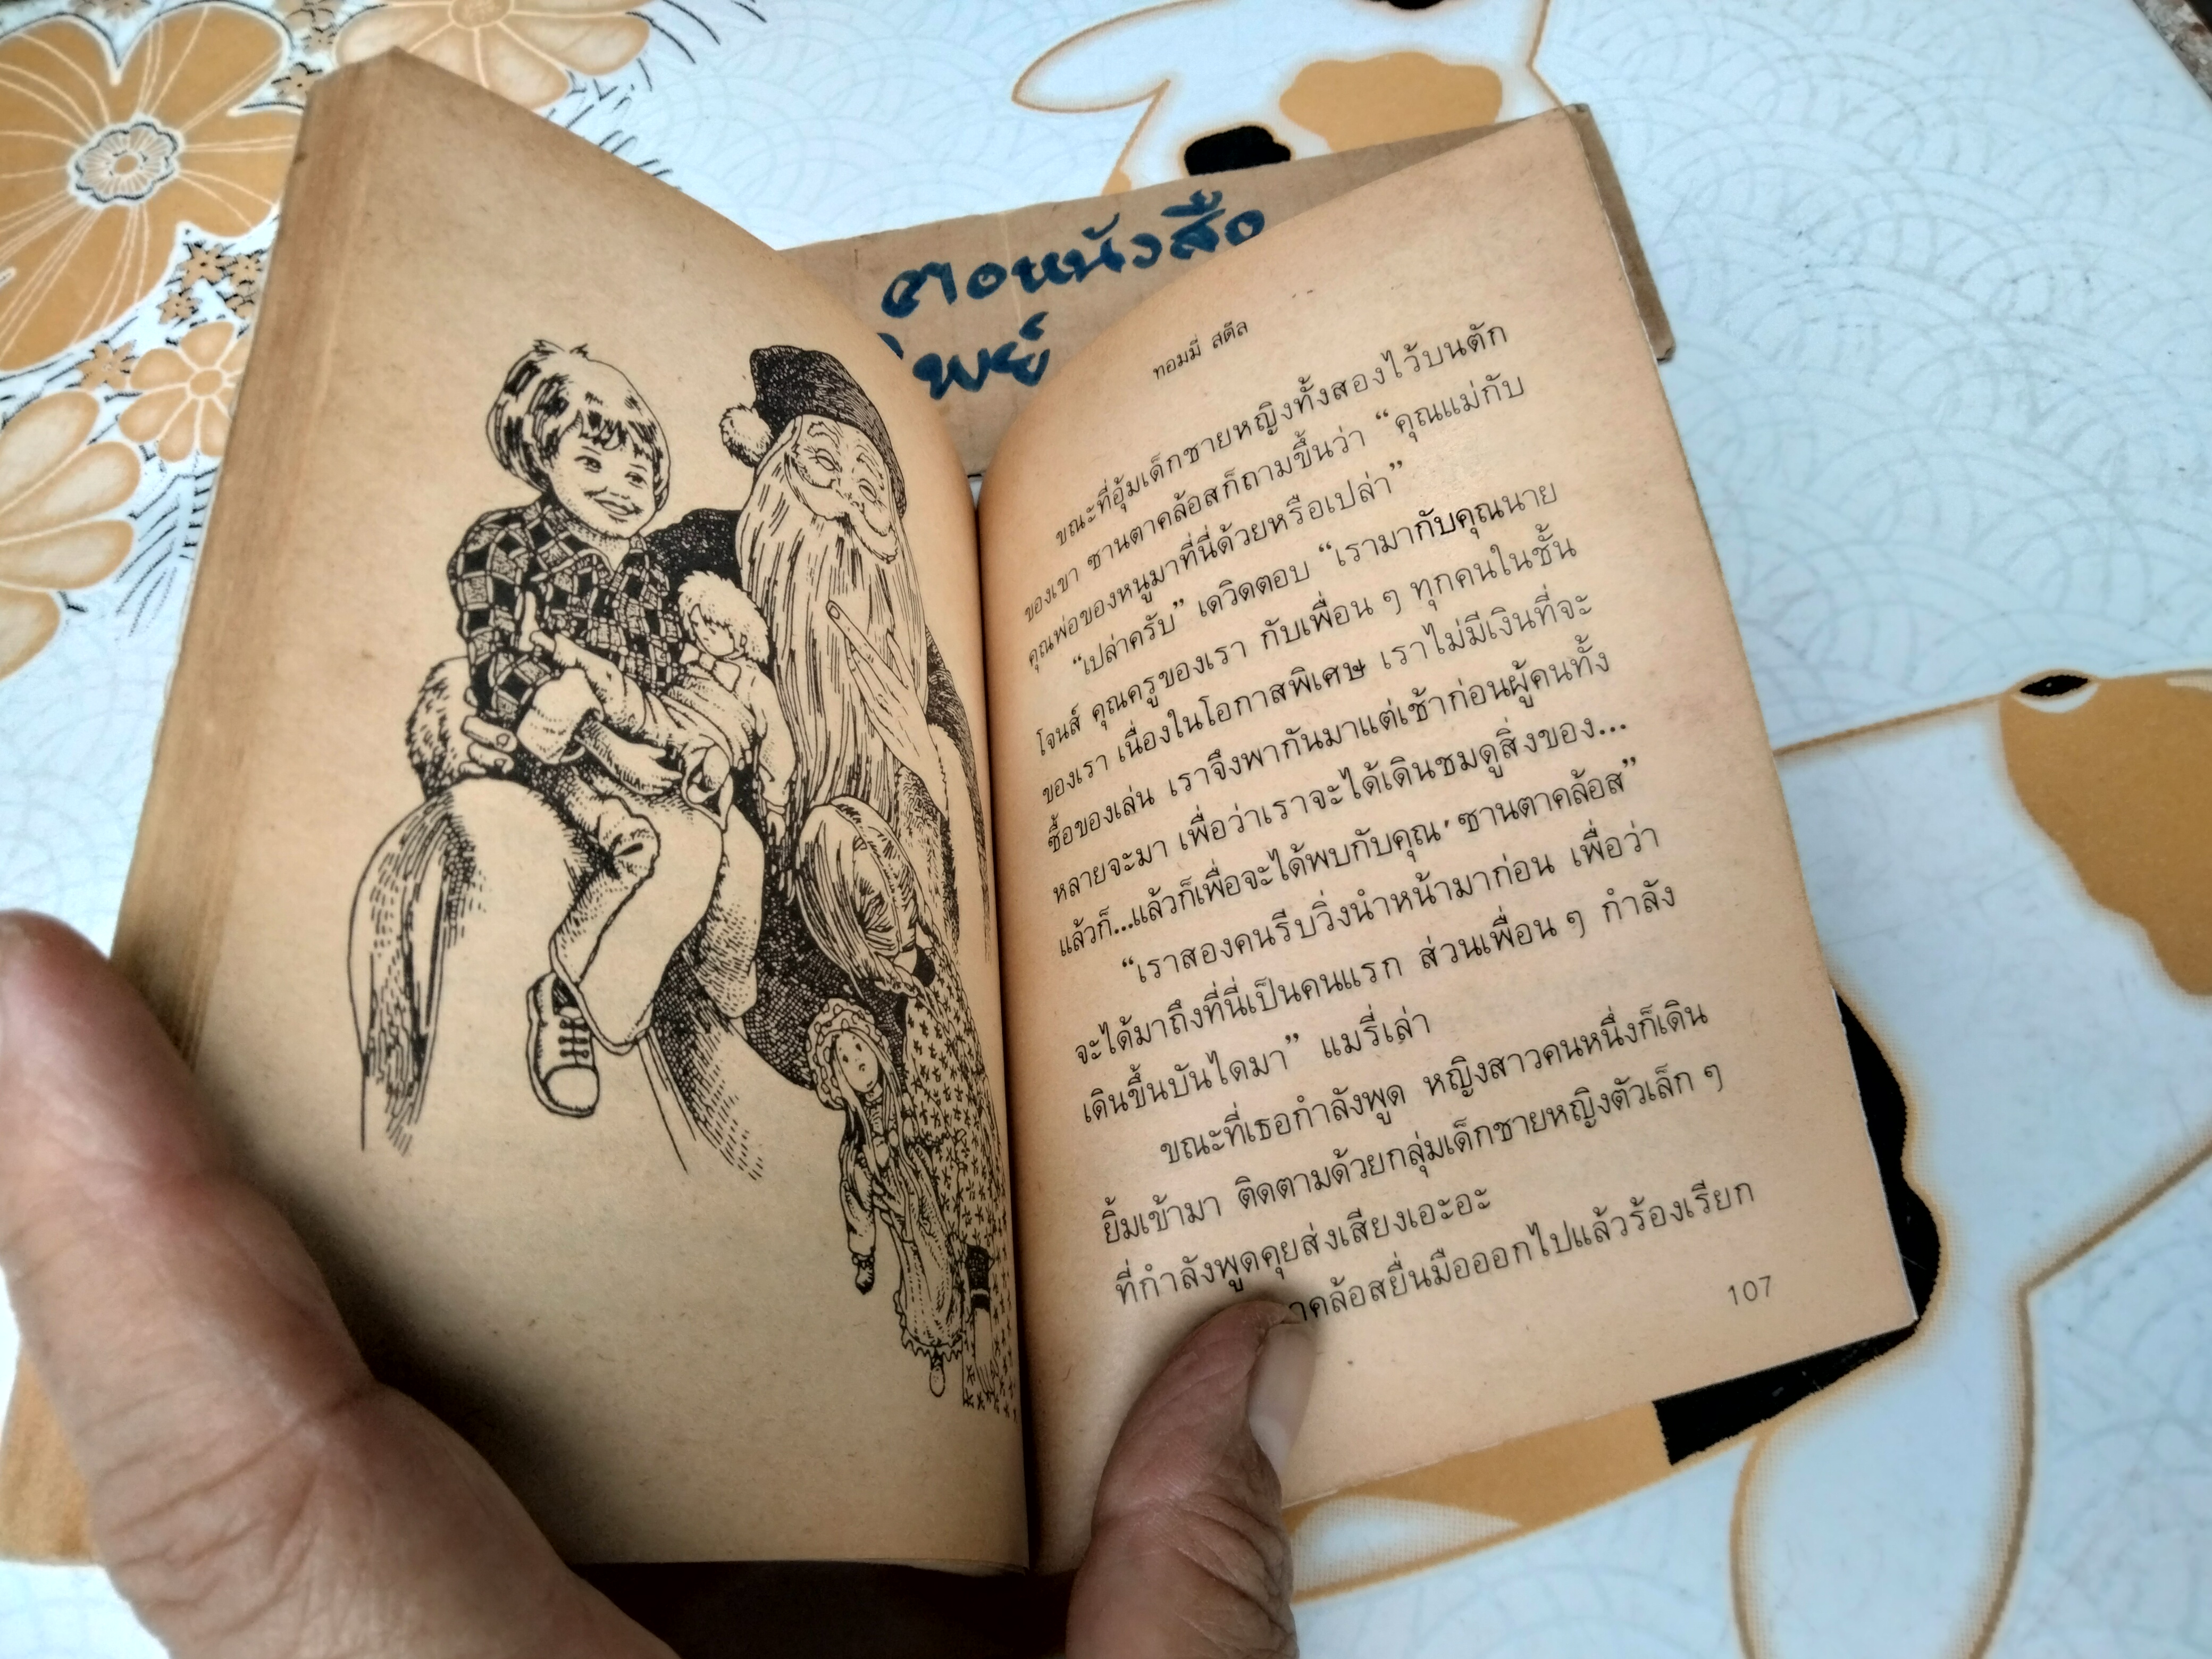 ตอหนังสือ
พย์
ทอมมี่ สตีล
ขณะที่อุ้มเด็กชายหญิงทั้งสองไว้บนตัก
ของเขา ซานตาคล้อสก็ถามขึ้นว่า “คุณแม่กับ
คุณพ่อของหนูมาที่นี่ด้วยหรือเปล่า”
“เปล่าครับ” เดวิดตอบ “เรามากับคุณนาย
โจนส์ คุณครูของเรา กับเพื่อน ๆ ทุกคนในชั้น
ของเรา เนื่องในโอกาสพิเศษ เราไม่มีเงินที่จะ
ซื้อของเล่น เราจึงพากันมาแต่เช้าก่อนผู้คนทั้ง
หลายจะมา เพื่อว่าเราจะได้เดินชมดูสิ่งของ...
แล้วก็...แล้วก็เพื่อจะได้พบกับคุณ ซานตาคล้อส”
“เราสองคนรีบวิ่งนำหน้ามาก่อน เพื่อว่า
จะได้มาถึงที่นี่เป็นคนแรก ส่วนเพื่อน ๆ กำลัง
เดินขึ้นบันไดมา” แมรี่เล่า
ขณะที่เธอกำลังพูด หญิงสาวคนหนึ่งก็เดิน
ยิ้มเข้ามา ติดตามด้วยกลุ่มเด็กชายหญิงตัวเล็ก ๆ
ที่กำลังพูดคุยส่งเสียงเอะอะ
าคล้อสยื่นมือออกไปแล้วร้องเรียก
107